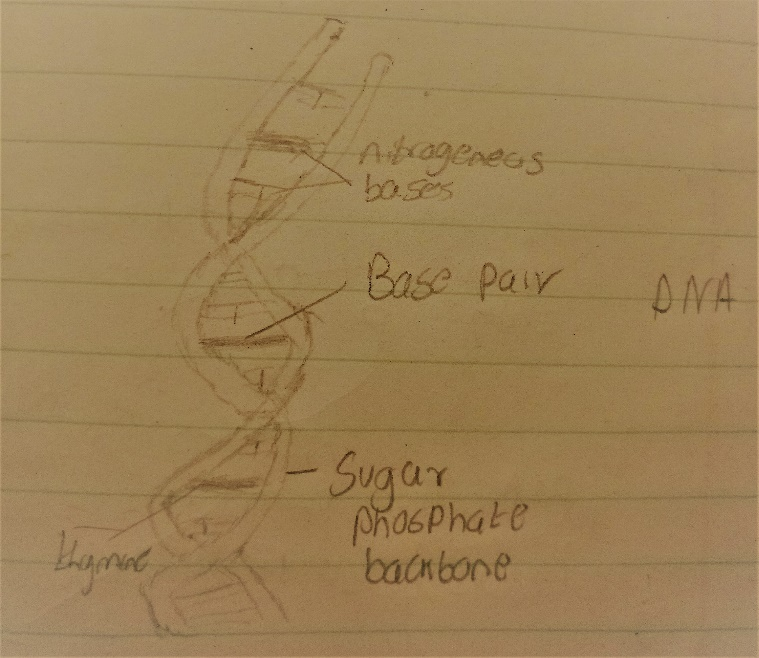 nitrogeneos
bases
Base pair
DNA
Sugar
phosphate
backbone
thymine